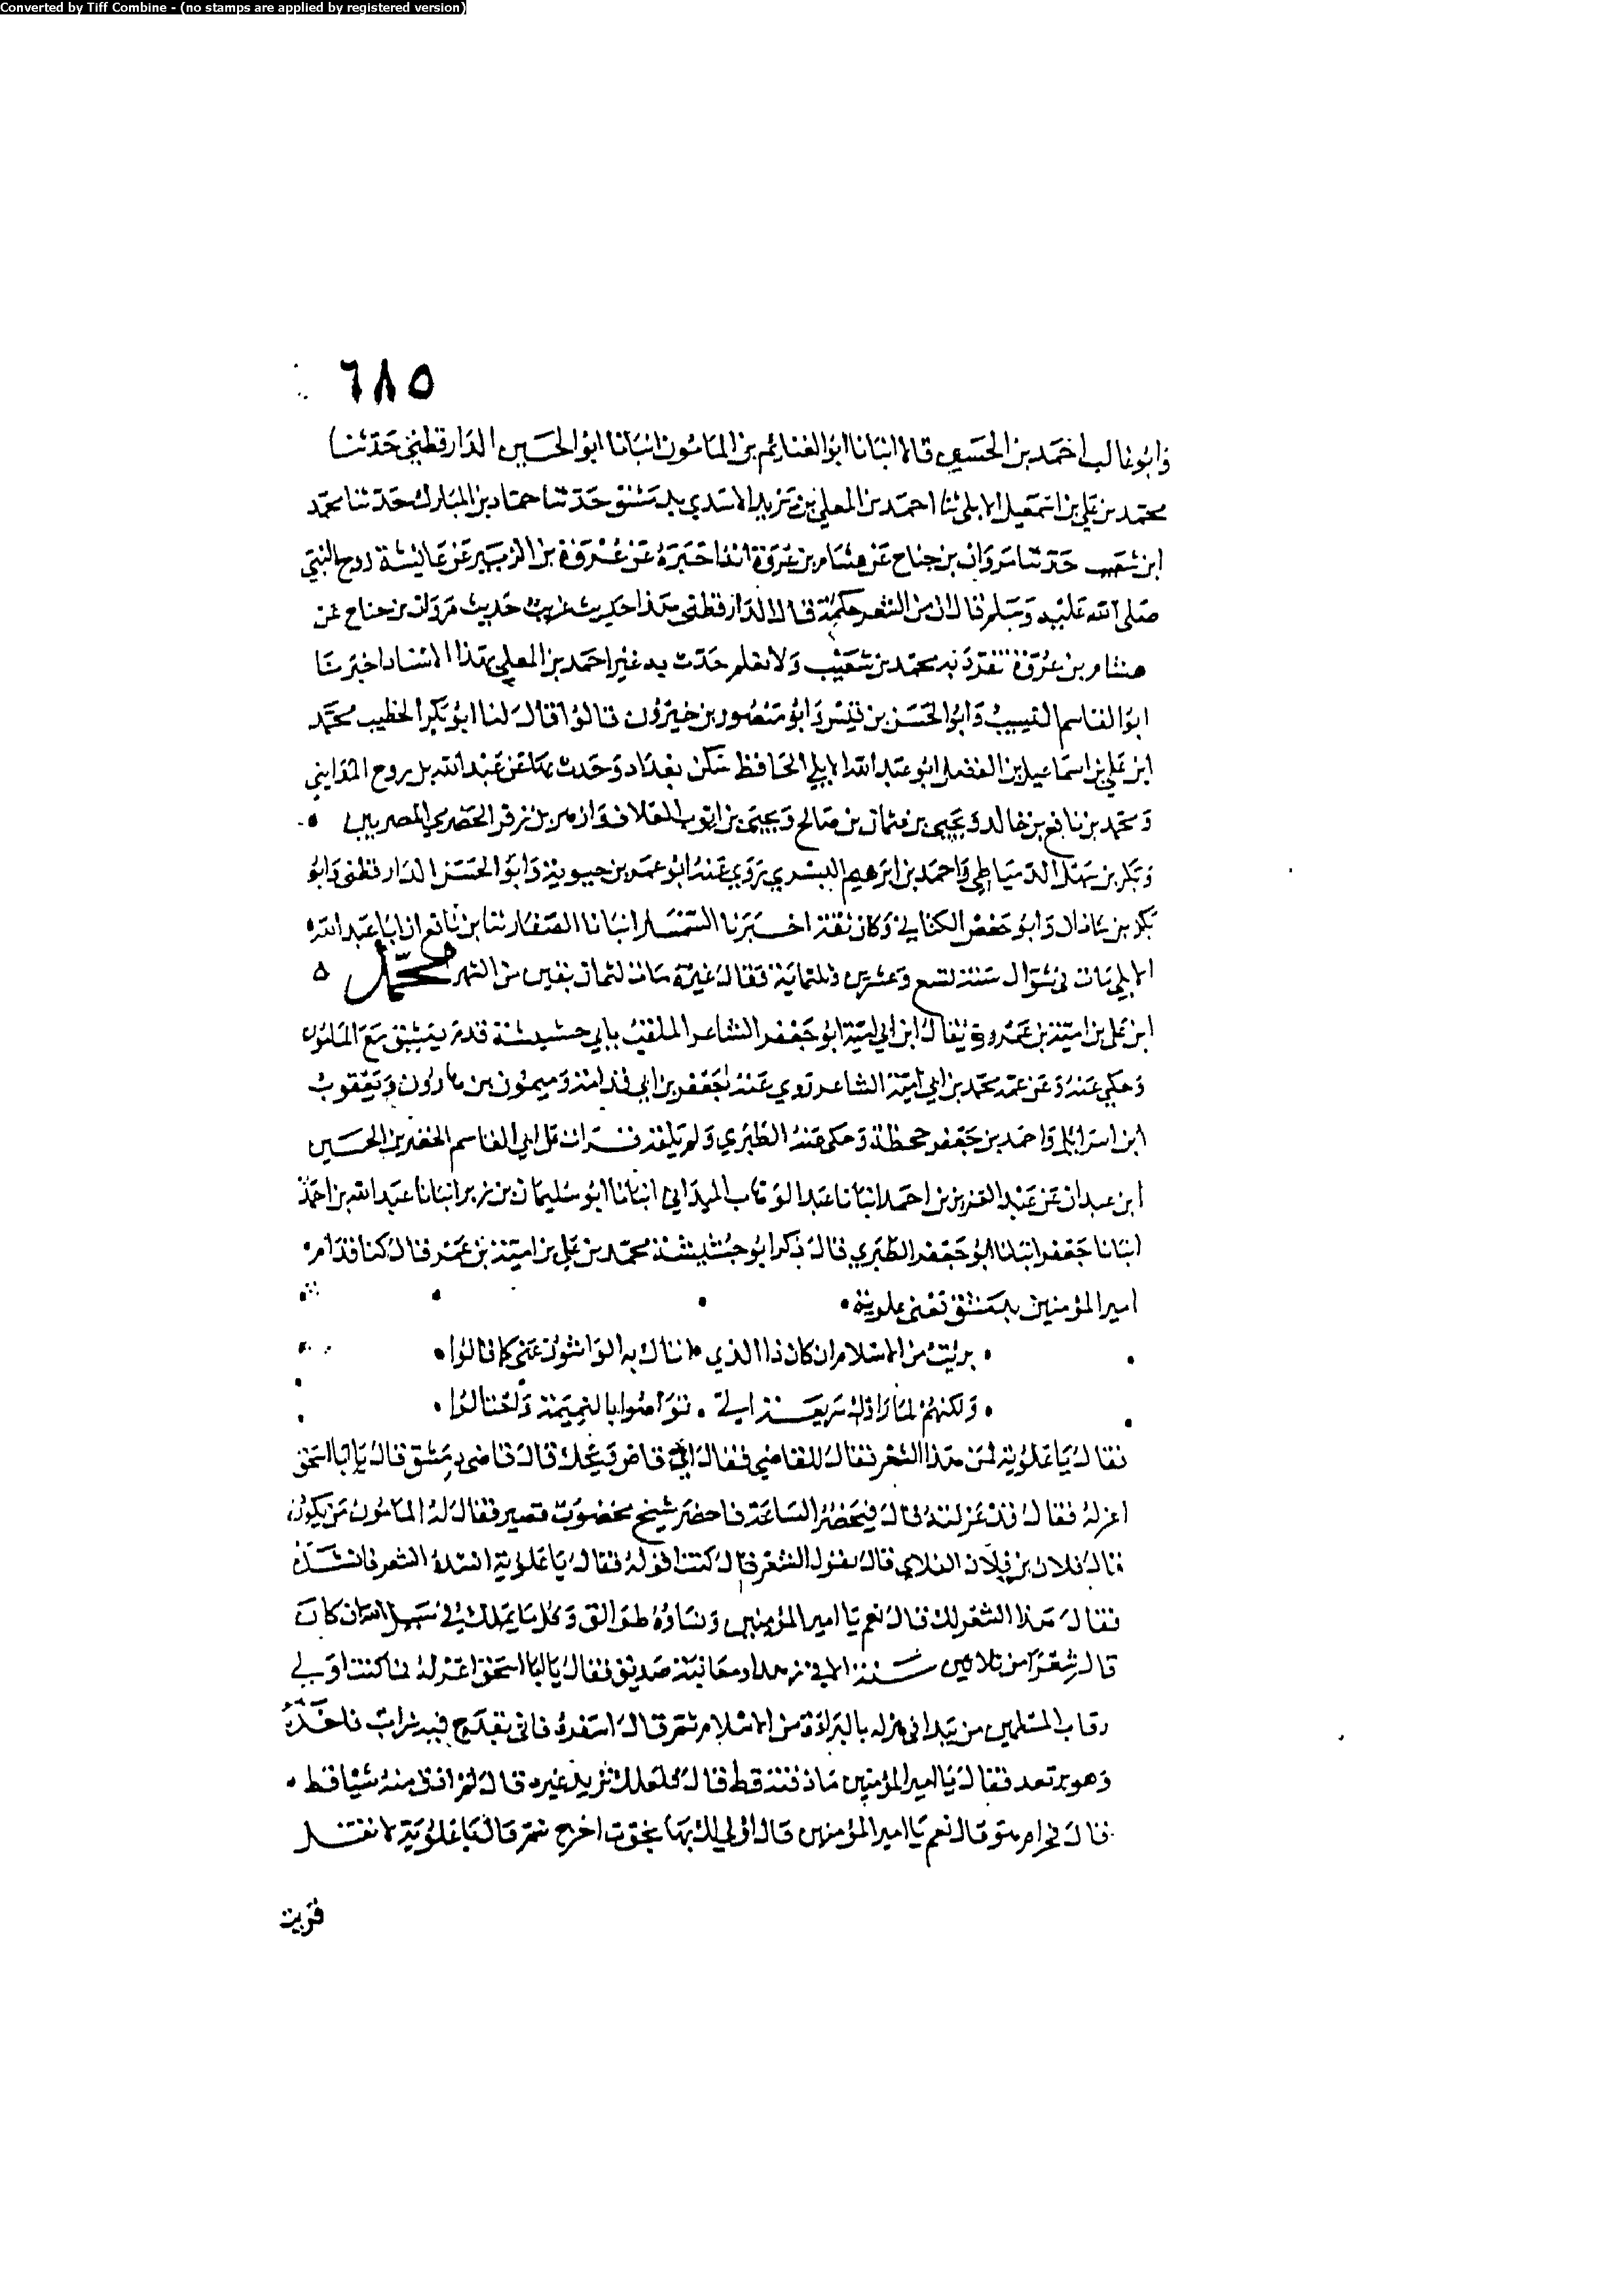 Converted by Tiff Combine - (no stamps are applied by registered version)
٦٨٥
وابو غالب احمد بن الحسن قالا انبانا ابو الغنائم بن المامون انبانا ابو الحسين الدارقطني حدثنا
محمد بن علي بن اسمعيل الابلي ثنا احمد بن المعلي بن يزيد الاسدي بدمشق حدثنا حماد بن المبارك حدثنا محمد
ابن شعيب حدثنا مروان بن جناح عن هشام بن عروة انه اخبره عن عروة بن الزبير عن عايشة زوج النبي
صلى الله عليه وسلم قال ان من الشعر حكمة قال الدارقطني هذا حديث غريب حديث مروان بن جناح عن
هشام بن عروة تفرد به محمد بن شعيب ولا نعلم حدث به غير احمد بن المعلي بهذا الاسناد اخبرنا
ابو القاسم النسيب وابو الحسن بن قبيس وابو منصور بن خيرون قالوا قال لنا ابو بكر الخطيب محمد
ابن علي بن اسماعيل بن الفضل ابو عبد الله الابلي الحافظ سكن بغداد وحدث بها عن عبد الله بن روح المدايني
ومحمد بن نافع بن خالد ويحيى بن عثمان بن صالح ويحيى بن ايوب العلاف وازهر بن زفر الحضرمي المصريين
وبكر بن سهل الدمياطي واحمد بن ابرهيم البسري روي عنه ابو عمر بن حيوية وابو الحسن الدارقطني وابو
بكر بن شاذان وابو حفص الكتاني وكان ثقة اخبرنا السمسار انبانا الصفار ثنا بن نافع ان ابا عبد الله
الابلي مات في شوال سنة تسع وعشرين وثلثماية وقال غيره مات لثمان بقين من الشهر محمد
ابن علي بن امية بن عمرو ويقال ابن ابي امية ابو جعفر الشاعر الملقب بابي حشيشة قدم دمشق مع المامون
وحكي عنه وعن عمه محمد بن ابي امية الشاعر روي عنه جعفر بن ابي قدامة وميمون بن هارون ويعقوب
ابن اسرائيل واحمد بن جعفر جحظة وحكى عنه الطبري ولم يلقه قرات على ابي القاسم الخضر بن الحسين
ابن عبدان عن عبد العزيز بن احمد انبانا عبد الوهاب الميداني انبانا ابو سليمان بن زبر انبانا عبد الله بن احمد
انبانا جعفر انبانا ابو جعفر الطبري قال ذكر ابو حشيشة محمد بن علي بن امية بن عمر قال كنا قدام
امير المؤمنين بدمشق تغنى علوية
برئت من الاسلام ان كان ذا الذي اتاك به الواشون عني كما قالوا
ولكنهم لما راوك سريعة الي تواصوا بالنميمة واحتالوا
فقال يا علوية لمن هذا الشعر فقال للقاضي فقال اي قاض ويحك قال قاضي دمشق قال يا ابا اسحق
اعزله فقال قد عزلته قال فيحضر الساعة فاحضر شيخ مخضوب قصير فقال له المامون من تكون
قال فلان بن فلان الفلاني قال تقول الشعر قال كنت اقوله فقال يا علوية انشده الشعر فانشده
فقال هذا الشعر لك قال نعم يا امير المؤمنين ونساؤه طوالق وكل ما يملك في سبيل الله ان كان
قال شعرا من ثلاثين سنة الا في زهد او معاتبة صديق فقال يا ابا اسحق اعزله فما كنت اولي
رقاب المسلمين من يبدا في هزله بالبراءة من الاسلام ثم قال اسقوه فاتى بقدح فيه شراب فاخذه
وهو يرتعد فقال يا امير المؤمنين ما ذقته قط قال فلعلك تريد غيره قال لم اذق منه شيا قط
قال فحرام هو قال نعم يا امير المؤمنين قال اولي لك بها نجوت اخرج ثم قال يا علوية لا تقل
فربت